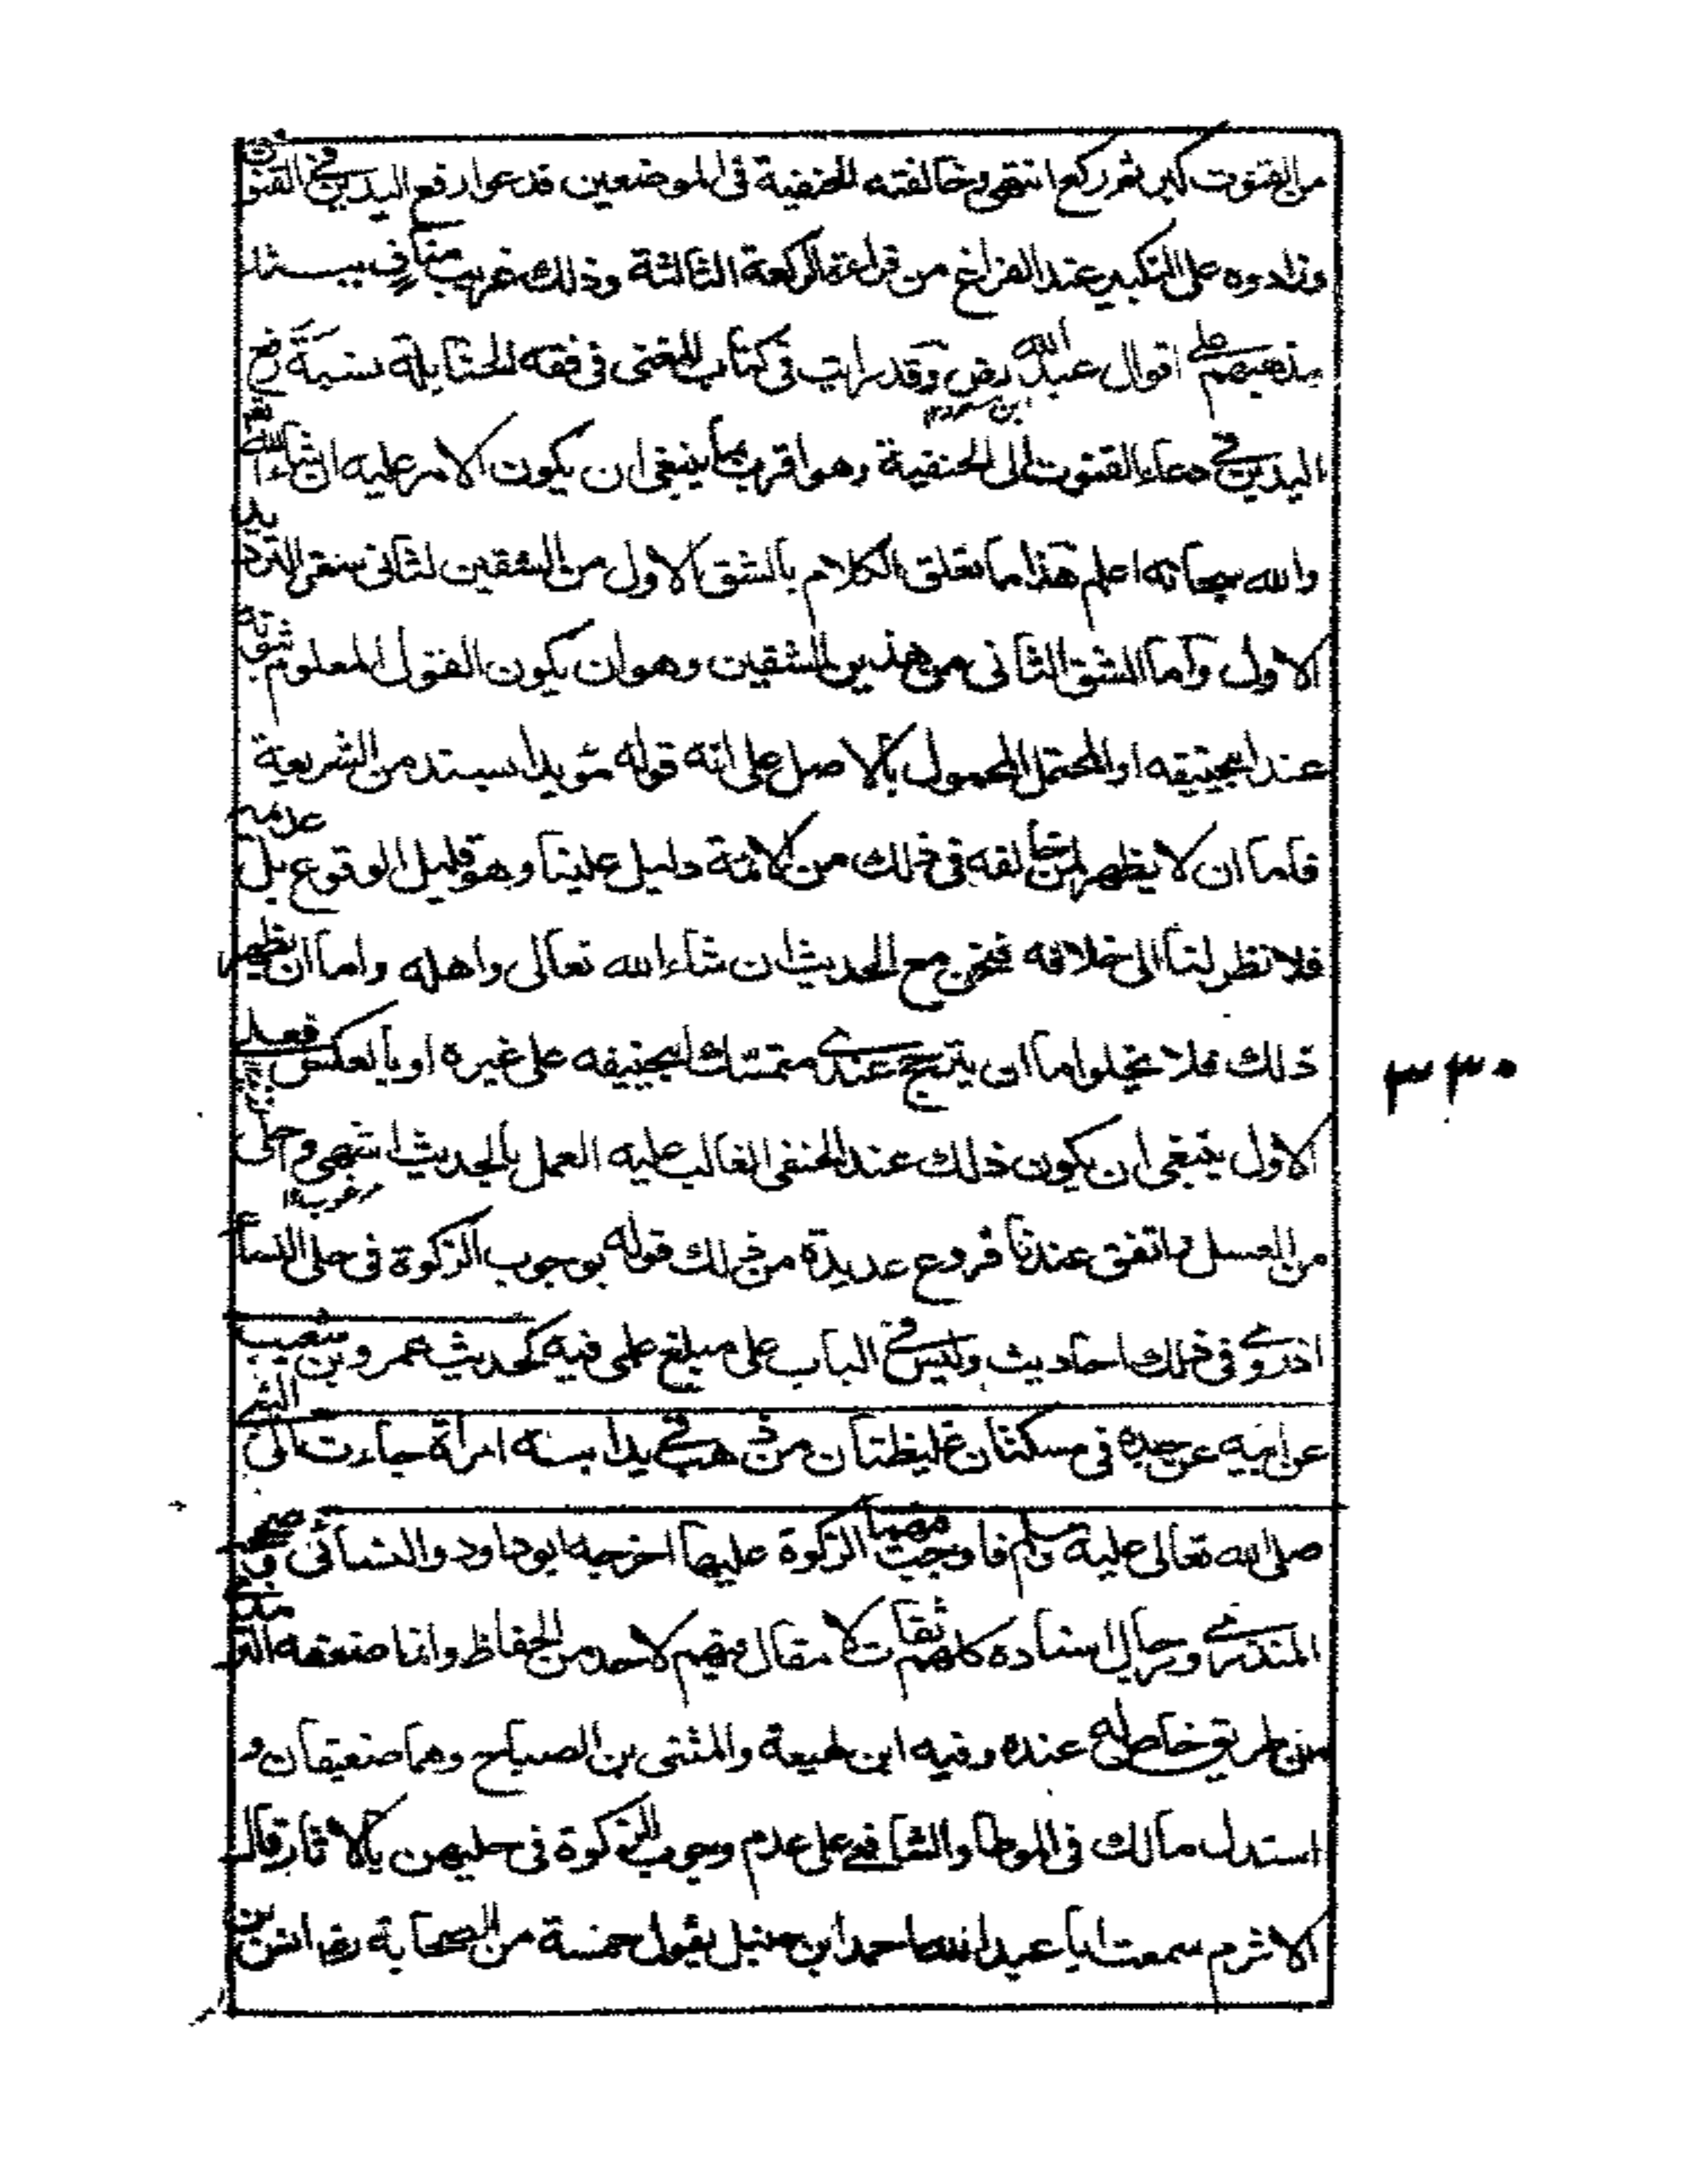 من القنوت كبر ثم ركع انتهى وخالفته الحنفية فى الموضعين قد عوا رفع اليدين فى القنوت
وزادوه على التكبير عند الفراغ من قراءة الركعة الثالثة وذلك غريب مناف بسند
مذهبهم على اقوال عبد الله بن مسعود رض وقد رايت فى كتاب المغنى فى فقه الحنابلة نسبة رفع
اليدين فى دعاء القنوت الى الحنفية وهو اقرب بما ينبغى ان يكون الامر عليه ان شاء الله تعالى
والله سبحانه اعلم هذا ما تعلق الكلام بالشق الاول من الشقين لثانى شقى الترديد
الاول واما الشق الثانى من هذين الشقين وهو ان يكون القول المعلوم ثبوته
عند ابيحنيفه او المحتمل المحمول بالاصل على انه قوله مويدا بسند من الشريعة
فاما ان لا يظهر لمن خالفه فى ذلك من الائمة دليل علينا وهو قليل الوقوع بل عدمه
فلا نظر لنا الى خلافه فنحن مع الحديث ان شاء الله تعالى واهله واما ان يظهر
ذلك فلا يخلوا اما ان يترجح عندى متمسك ابيحنيفه على غيره او بالعكس فعلى
الاول ينبغى ان يكون ذلك عند الحنفى الغالب عليه العمل بالحديث اشهى واحلى
من العسل واتفق عندنا فروع عديدة من ذلك قوله بوجوب الزكوة فى حلى النساء
اذ روى فى ذلك احاديث وليس فى الباب على مبلغ علمى فيه كحديث عمرو بن شعيب
عن ابيه عن جده فى مسكتان غليظتان من ذهب فى يد ابنه امرأة جاءت الى النبى
صلى الله تعالى عليه وسلم فاوجبت الزكوة عليها اخرجه ابو داود والنسائى وصححه
المنذرى ورجال اسناده كلهم ثقات لا مقال فيهم لاحد من الحفاظ وانما ضعفه الترمذى
من طريق خاص له عنده وفيه ابن لهيعة والمثنى بن الصباح وهما ضعيفان و
استدل مالك فى الموطا والشافعى على عدم وجوب الزكوة فى حليهن بالاثار قال
الاثرم سمعت ابا عبد الله احمد ابن حنبل يقول خمسة من الصحابة رض انس بن
٣٣٠